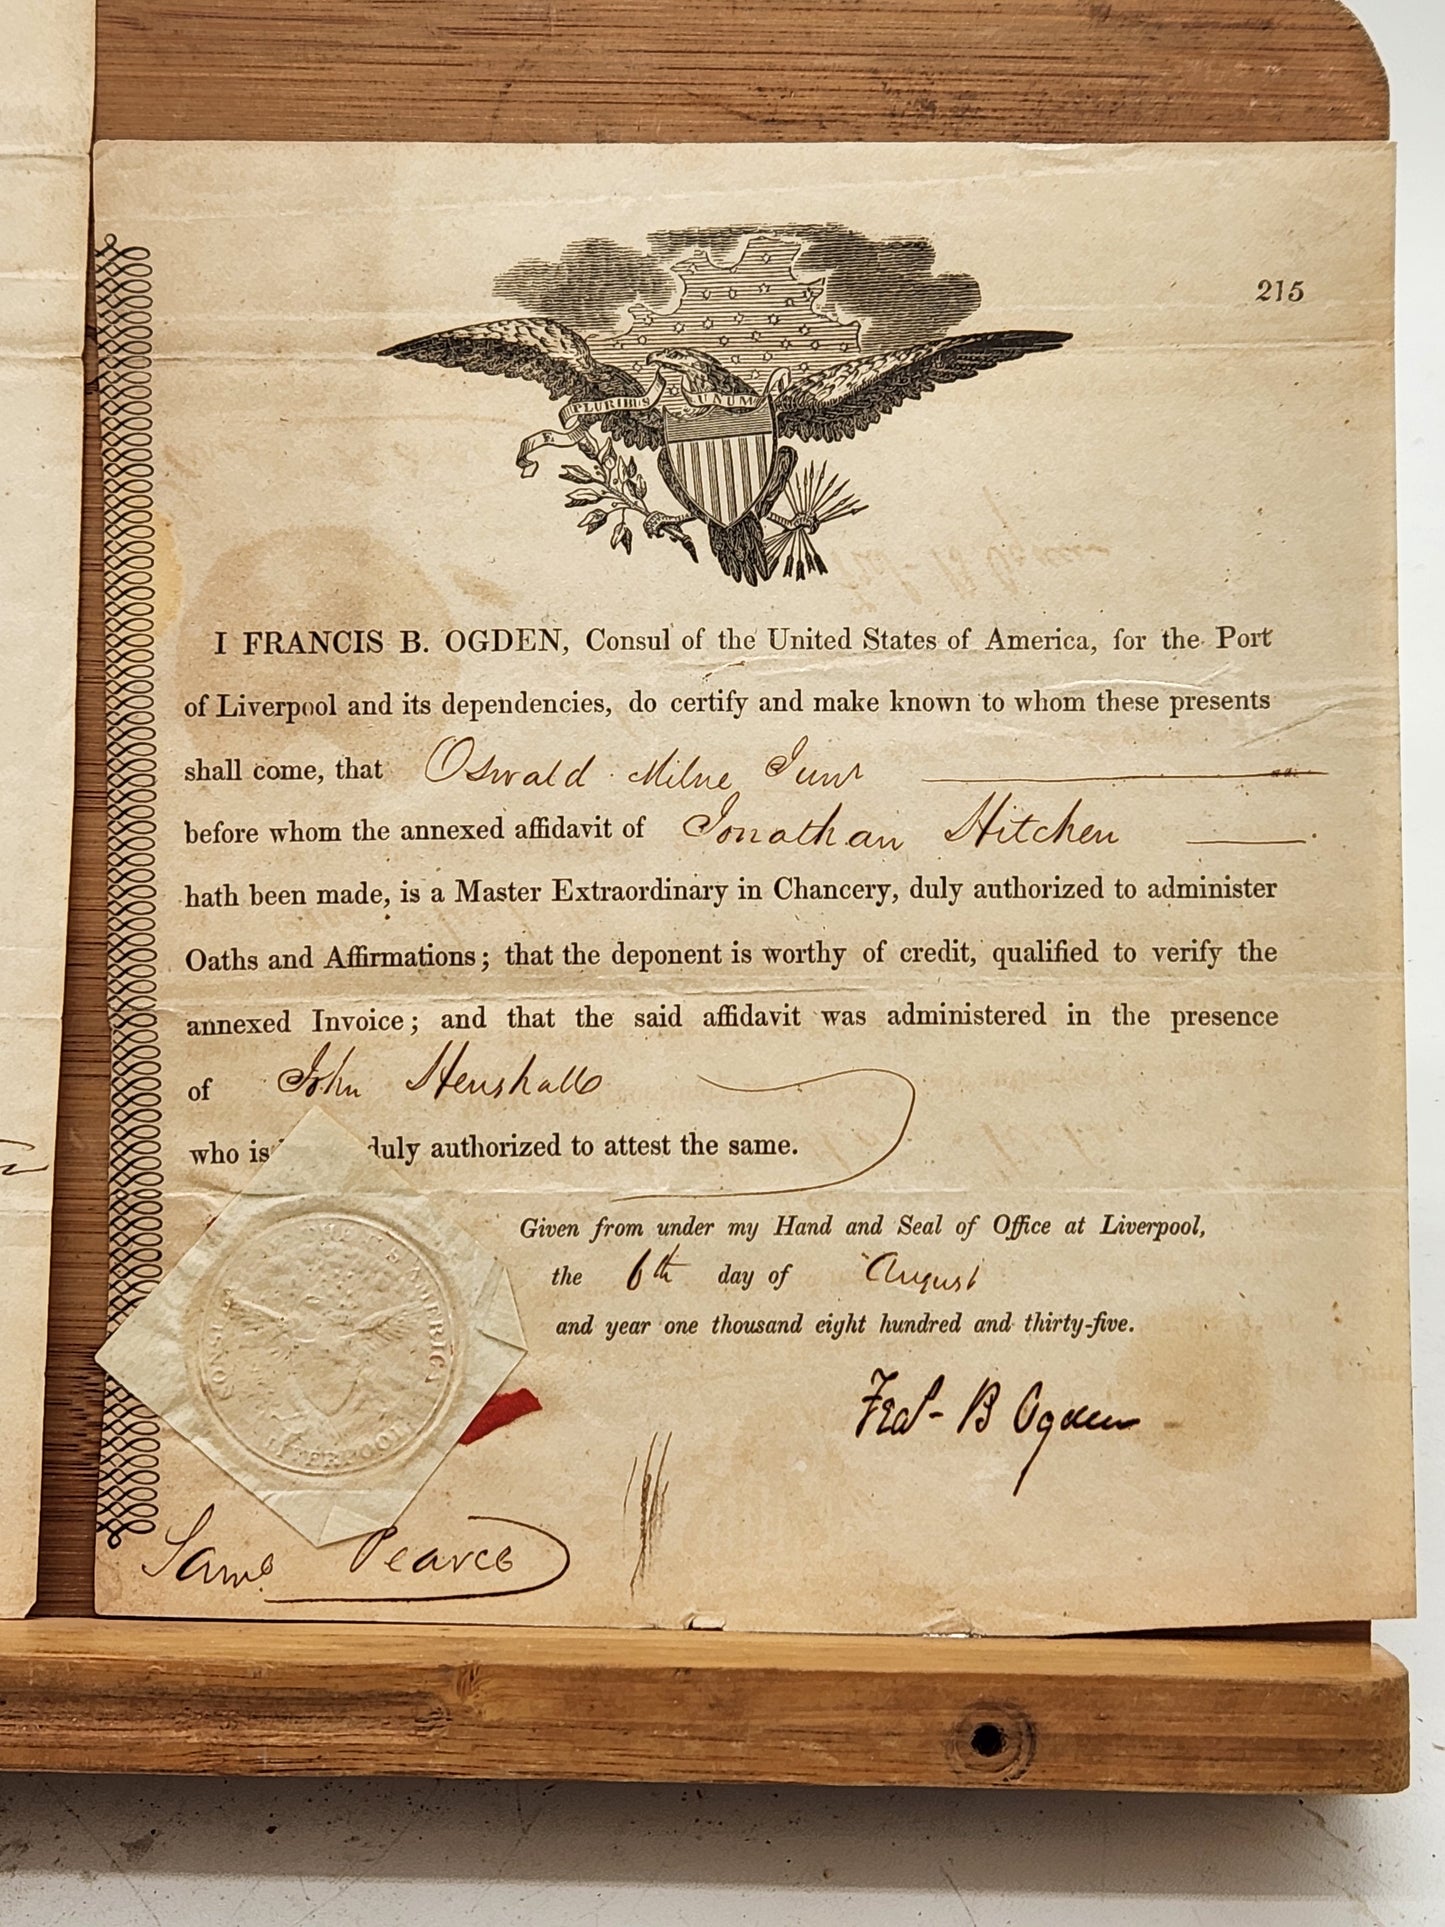 215
E PLURIBUS UNUM
I FRANCIS B. OGDEN, Consul of the United States of America, for the Port
of Liverpool and its dependencies, do certify and make known to whom these presents
shall come, that Oswald Milne Junr
before whom the annexed affidavit of Jonathan Hitchen
hath been made, is a Master Extraordinary in Chancery, duly authorized to administer
Oaths and Affirmations; that the deponent is worthy of credit, qualified to verify the
annexed Invoice; and that the said affidavit was administered in the presence
of John Henshall
who is duly authorized to attest the same.
Given from under my Hand and Seal of Office at Liverpool,
the 6th day of August
and year one thousand eight hundred and thirty-five.
AMERICA
LIVERPOOL
B Ogden
Pearce